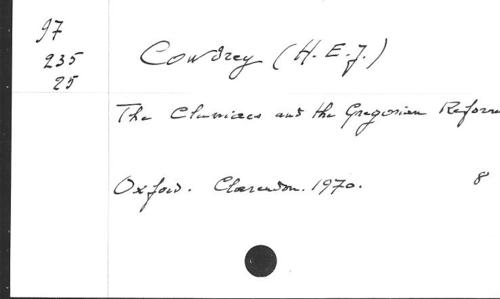 97
235
25
Cowdrey (H. E. J.)
The Cluniacs and the Gregorian Reform
Oxford. Clarendon. 1970. 8